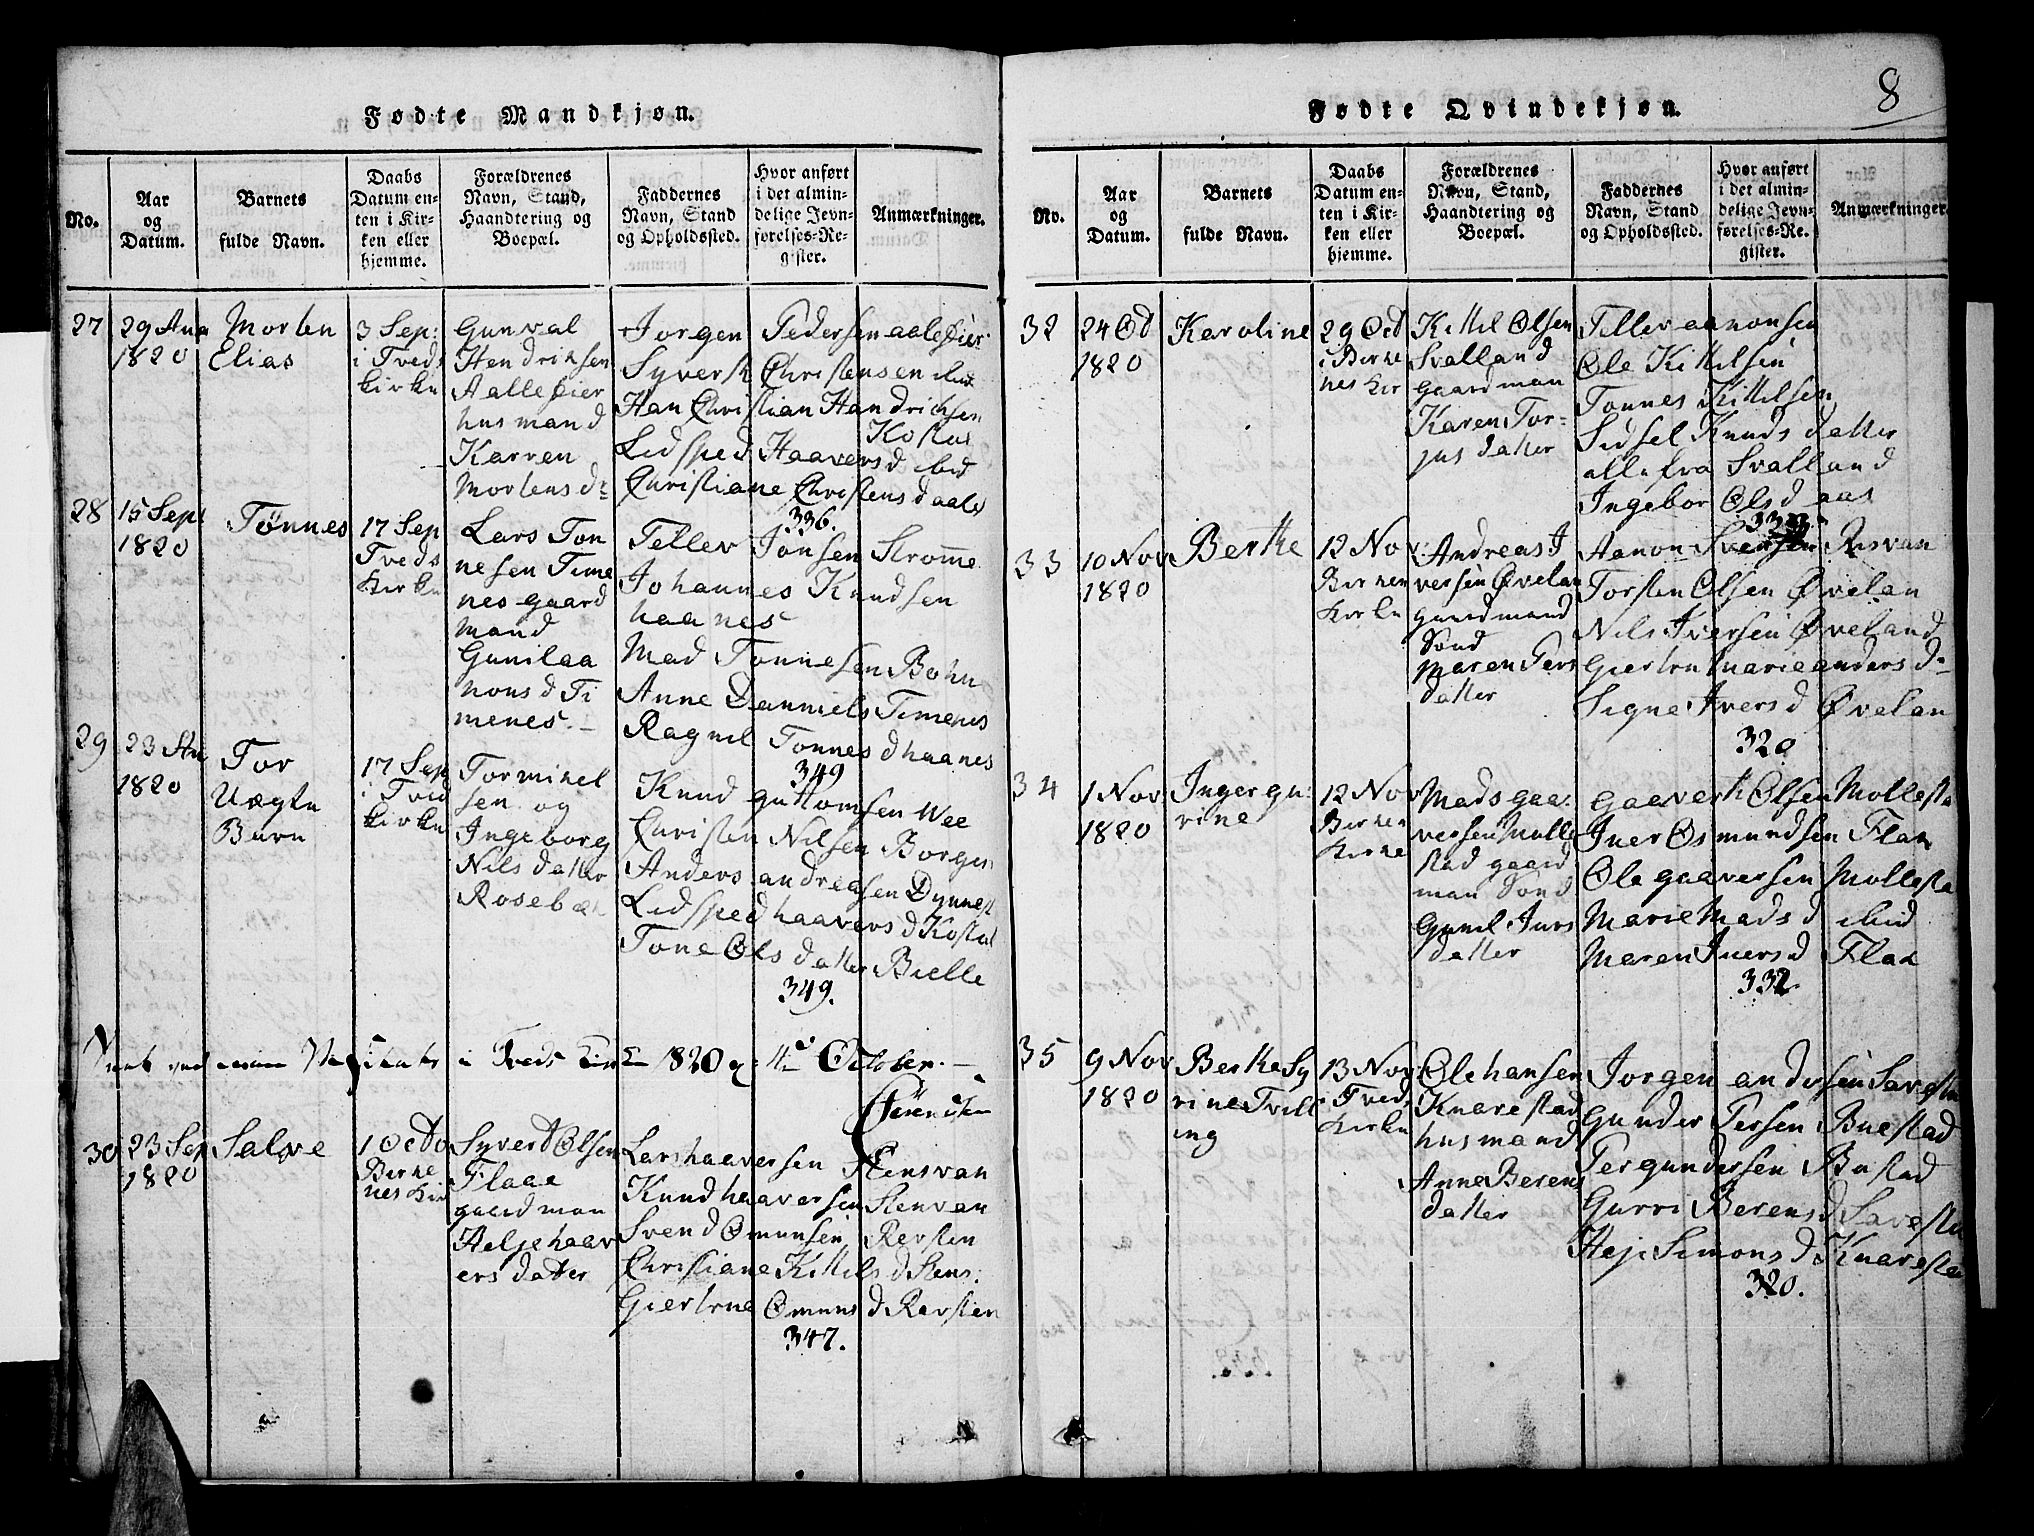 8
Fødte Mandkjøn.
No.
Aar
og
Datum.
Barnets
fulde Navn.
Daabs
Datum en-
ten i Kir-
ken eller
hjemme.
Forældrenes
Navn, Stand,
Haandtering og
Boepæl.
Faddernes
Navn, Stand
og Opholdssted.
Hvor anført
i det almin-
delige Jevn-
førelses-Re-
gister.
Anmærkninger.
27
29 Aug
1820
Morten
Elias
3 Sep:
i Tveds
Kirke
Gunval
Hendriksen
Aalleøier
husmand
Karren
Mortensd
Jorgen Pedersen aaleøier
Syvert Christensen ibid
Han Christian Handrichsen
Kostøl
Lidsped Haaversd ibid
Christiane Christensd aalø
336.
28
15 Sept
1820
Tønnes
17 Sep
Tveds
Kirke
Lars Ton
nesen Time
nes gaard
mand
Gunilaa
nonsd Ti
menes.
Tellev Jonsen Stromme
Johannes Knudsen
haanes
Mad Tonnesen Bohn
Anne Danniels Timenes
Ragnel Tonnesd haanes
349
29
23 Au
1820
Tor
Uægte
Barn
17 Sep
i Tved
Kirke
Tormikel
sen og
Ingeborg
Nilsdatter
Rosebæk
Knud guttomsen Wee
Christen Nilsen Borgen
Anders andreasen Dynnest
Lidsped haaversd Kostøl
Tone Olsdatter Bielle
349.
i Tveds Kirke 1820 4de October.
30
23 Sep
1820
Salve
1 Octo
Birke
nes Kir
Syvert Olsen
Flaae
gaardman
Aslje haav
ersdatter
Lars haaversen Stensvan
Knud haaversen Stenvan
Svend Omunsen Rersten
Christiane Kittilsd Stens:
Giertrue Omunsd Rersten
347.
Fødte Qvindekjøn.
No.
Aar
og
Datum.
Barnets
fulde Navn.
Daabs
Datum en-
ten i Kir-
ken eller
hjemme.
Forældrenes
Navn, Stand,
Haandtering og
Boepæl.
Faddernes
Navn, Stand
og Opholdssted.
Hvor anført
i det almin-
delige Jevn-
førelses-Re-
gister.
Anmærkninger.
32
24 Od
1820
Karoline
29 Oct
i Birke
nes Kir
Kittil Olsen
Svalland
gaardman
Karen Tor-
jusdatter
Tellev aanonsen
Ole Kittilsen
Tonnes Kittelsen
Sidsel Knudsdatter
alle fra Svalland
Ingebor Olsd aas
33
10 Nov
1820
Berthe
12 Nov
Birken
Kirke
Andreas I
versen Øvelan
gaardmand
Sønd
Maren Pers
datter
Aanon Svensen Risvan
Torsten Olsen Øvelan
Nils Iversen Øveland
Giertru Marie andersd
Signe Iversd Øvelan
320
34
1 Nov
1820
Inger gu:
rine
12 Nov
Birken
Kirke
Mads gaa:
versen Molle
stad gaard
man Sond
Gunil Iurs
datter
Gaavert Olsen Mollesta
Iver Osmundsen Flak
Ole gaaversen Mollesta
Marie Madsd ibid
Maren Iversd Flak
332.
35
9 Nov
1820
Berthe Sy
rine Tvill
ing
13 Nov
i Tveds
Kirke
Ole hansen
Knarestad
husmand
Anne Berens
datter
Jorgen andersen Savesta
Gunder Persen Buestad
Per gundersen Bustad
Gurri Berensd Savesta
Heje Simonsd Knaresta
320.